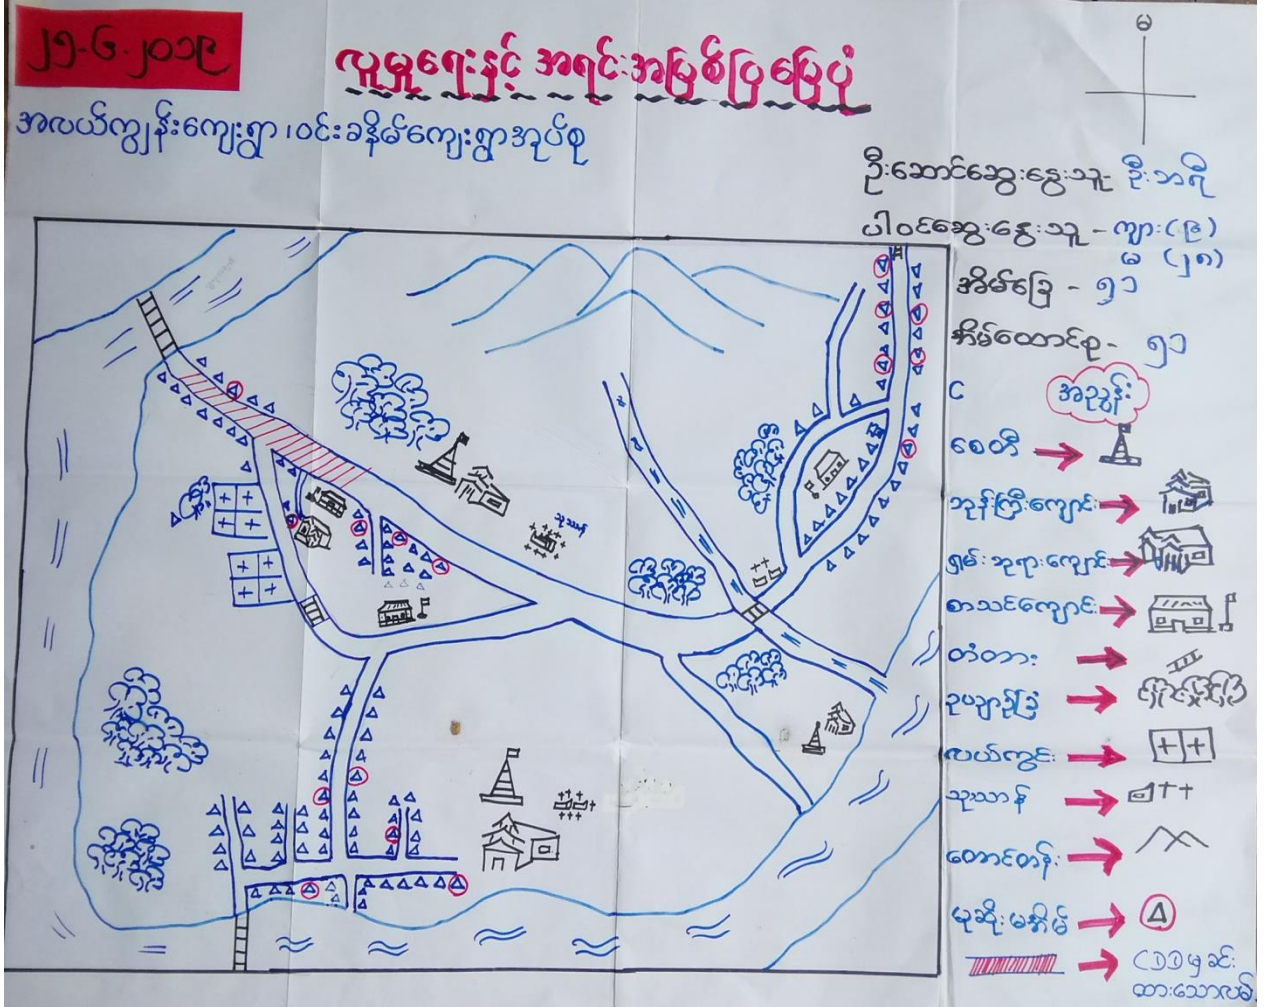 ၂၅-၆-၂၀၁၉
လူမှုရေးနှင့် အရင်းအမြစ်ပြမြေပုံ
အလယ်ကျွန်းကျေးရွာ၊ ဝင်းခနိမ်ကျေးရွာအုပ်စု
မ
ဦးဆောင်ဆွေးနွေးသူ- ဦးဘရီ
ပါဝင်ဆွေးနွေးသူ - ကျား(၉)
မ (၂၈)
အိမ်ခြေ - ၅၁
အိမ်ထောင်စု- ၅၁
အညွှန်း
စေတီ
ဘုန်းကြီးကျောင်း
ရှမ်းဘုရားကျောင်း
စာသင်ကျောင်း
တံတား
ဥယျာဉ်ခြံ
လယ်ကွင်း
သုသာန်
တောင်တန်း
မုဆိုးမအိမ်
CDDမှခင်း
ထားသောလမ်း